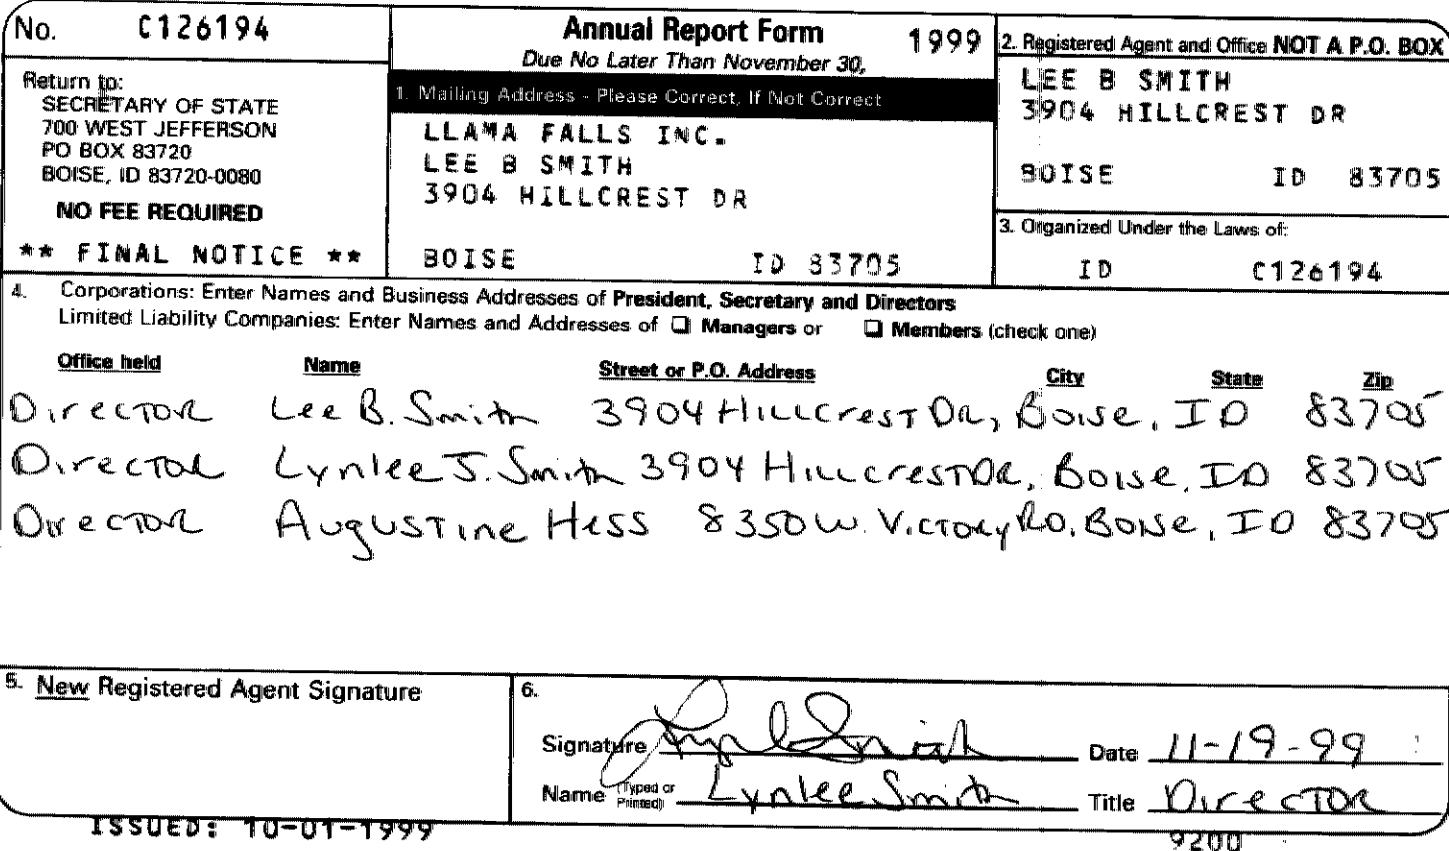 No. C126194
Return to:
SECRETARY OF STATE
700 WEST JEFFERSON
PO BOX 83720
BOISE, ID 83720-0080
NO FEE REQUIRED
** FINAL NOTICE **
Annual Report Form 1999
Due No Later Than November 30,
1. Mailing Address - Please Correct, If Not Correct
LLAMA FALLS INC.
LEE B SMITH
3904 HILLCREST DR
BOISE ID 83705
2. Registered Agent and Office NOT A P.O. BOX
LEE B SMITH
3904 HILLCREST DR
BOISE ID 83705
3. Organized Under the Laws of:
ID C126194
4. Corporations: Enter Names and Business Addresses of President, Secretary and Directors
Limited Liability Companies: Enter Names and Addresses of ❑ Managers or ❑ Members (check one)
Office held Name Street or P.O. Address City State Zip
Director Lee B. Smith 3904 Hillcrest Dr, Boise, ID 83705
Director Lynlee J. Smith 3904 Hillcrest Dr, Boise, ID 83705
Director Augustine Hess 8350 W. Victory Rd, Boise, ID 83705
5. New Registered Agent Signature
6.
Signature Lynlee Smith Date 11-19-99
Name (Typed or Printed) Lynlee Smith Title Director
ISSUED: 10-01-1999
9200